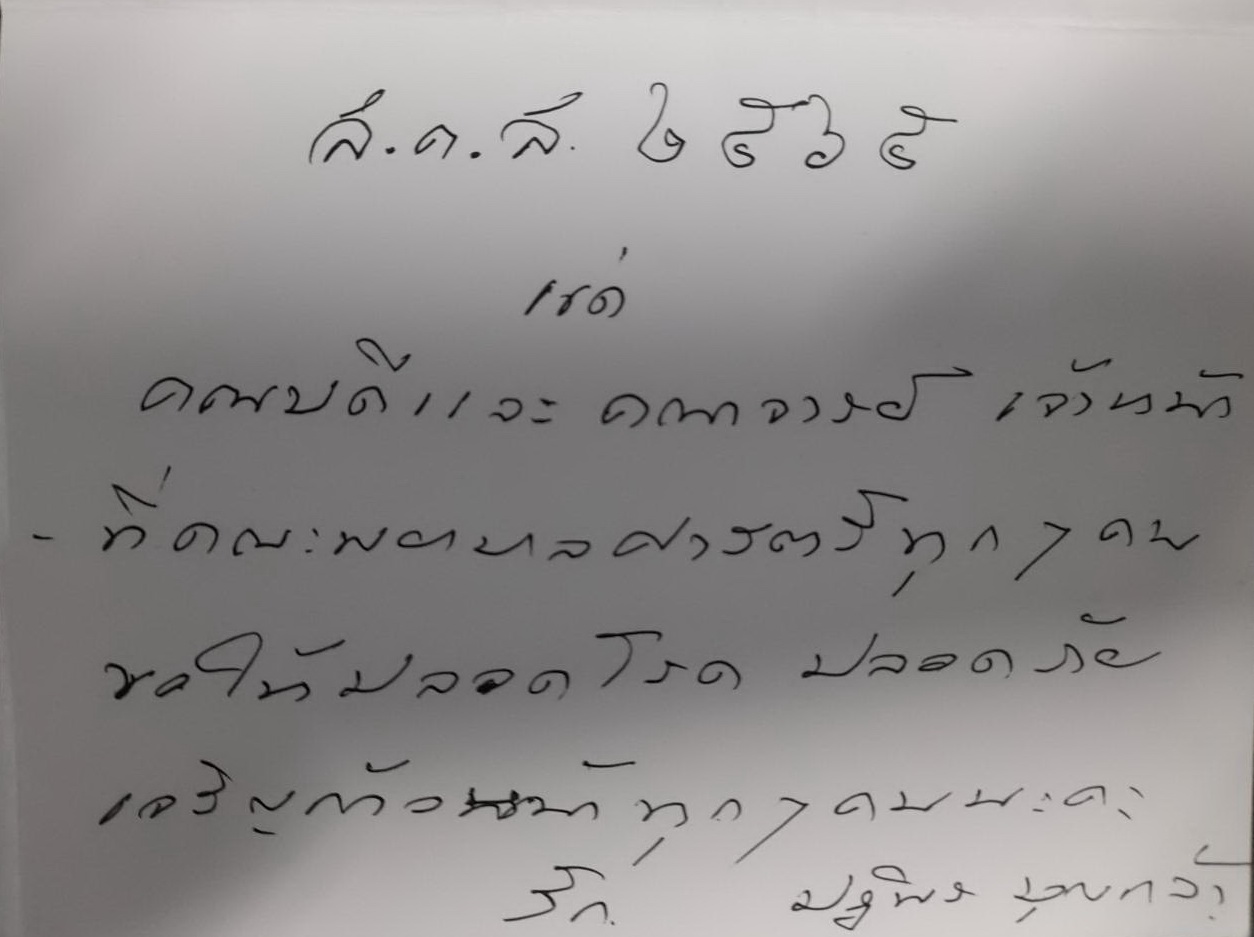 ส.ค.ส. ๒๕๖๕
แด่
คณบดีและ คณาจารย์ เจ้าหน้า
- ที่คณะพยาบาลศาสตร์ทุก ๆ คน
ขอให้ปลอดโรค ปลอดภัย
เจริญก้าวหน้า ทุก ๆ คนนะคะ
รัก